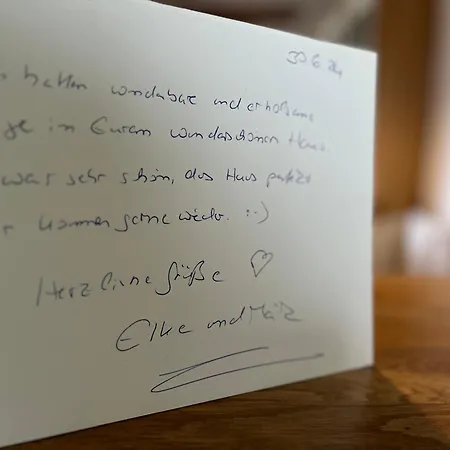 30.6.24
hatten wunderbare und erholsame
in Eurem wunderschönen Haus.
war sehr schön, das Haus perfekt
kommen gerne wieder. :-)
Herzliche Grüße ♡
Elke und